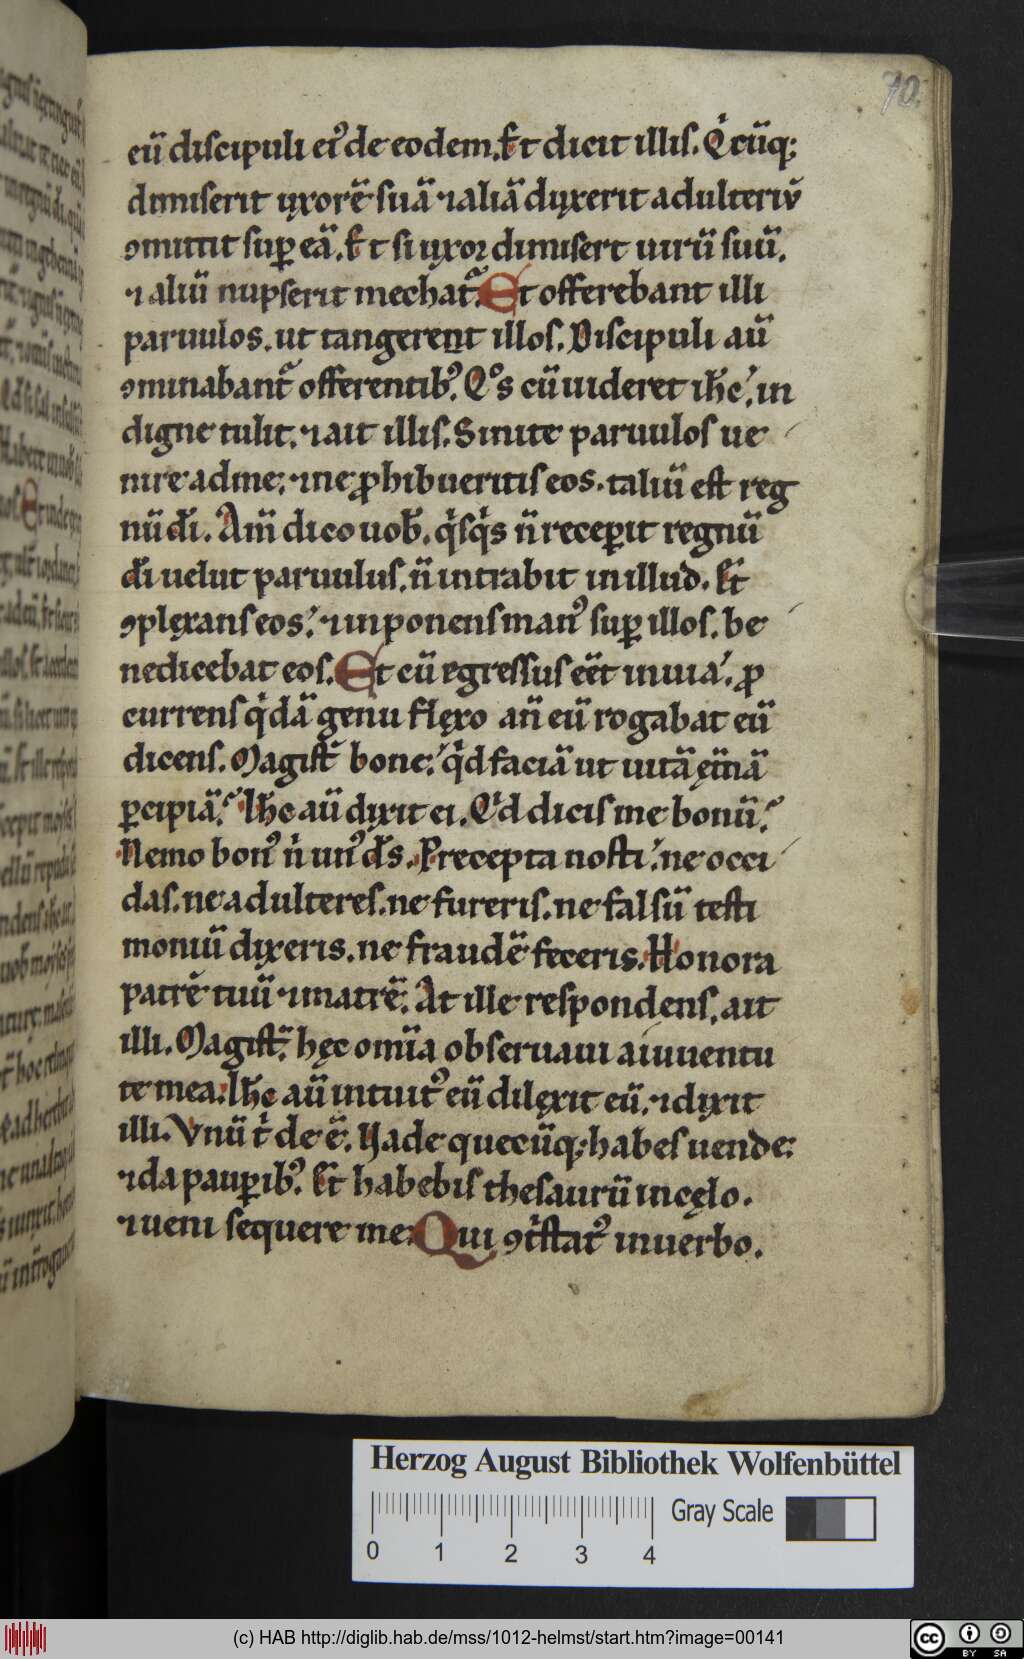 70.
eū discipuli eiꝰ de eodem. Et dicit illis. Qͥcūq;
dimiserit uxorē suā ⁊ aliā duxerit adulteriū
ꝯmittit suꝑ eā. Et si uxor dimisert uirū suū.
⁊ aliū nupserit mechatᷓ. Et offerebant illi
paruulos. ut tangerent illos. Discipuli aū
ꝯminabantᷓ offerentibꝰ. Qͦs cū uideret ih̄c, in
digne tulit. ⁊ ait illis. Sinite paruulos ue
nire ad me; ⁊ ne ꝓhibueritis eos. taliū est reg
nū dī. Am̄ dico uob̄. qͥsqͥs n̄ receꝑit regnū
dī uelut paruulus. n̄ intrabit in illud. Et
ꝯplęxans eos, ⁊ inponens manꝰ suꝑ illos. be
nedicebat eos. Et cū egressus eēt in uia, ꝓ
currens qͥdā genu flęxo an̄ eū rogabat eū
dicens. Magist̄ bone, qͥd faciā ut uitā ęt̄nā
ꝑcipiā? Ih̄c aū dixit ei. Qͥd dicis me bonū?
Nemo bonꝰ nͥ unꝰ ds̄. Precepta nosti, ne occi
das. ne adulteres. ne fureris. ne falsū testi
moniū dixeris. ne fraudē feceris. Honora
patrē tuū ⁊ matrē. At ille respondens. ait
illi. Magist̄. hęc om̄ia obseruaui a iuuentu
te mea. Ih̄c aū intuitꝰ eū dilęxit eū. ⁊ dixit
illi. Vnū tͥ de ē. Uade quecūq; habes uende;
⁊ da pauꝑibꝰ. Et habebis thesaurū in cęlo.
⁊ ueni sequere me. Qui ꝯtͥstatꝰ in uerbo.
Herzog August Bibliothek Wolfenbüttel
Gray Scale
0 1 2 3 4
(c) HAB http://diglib.hab.de/mss/1012-helmst/start.htm?image=00141
cc BY SA